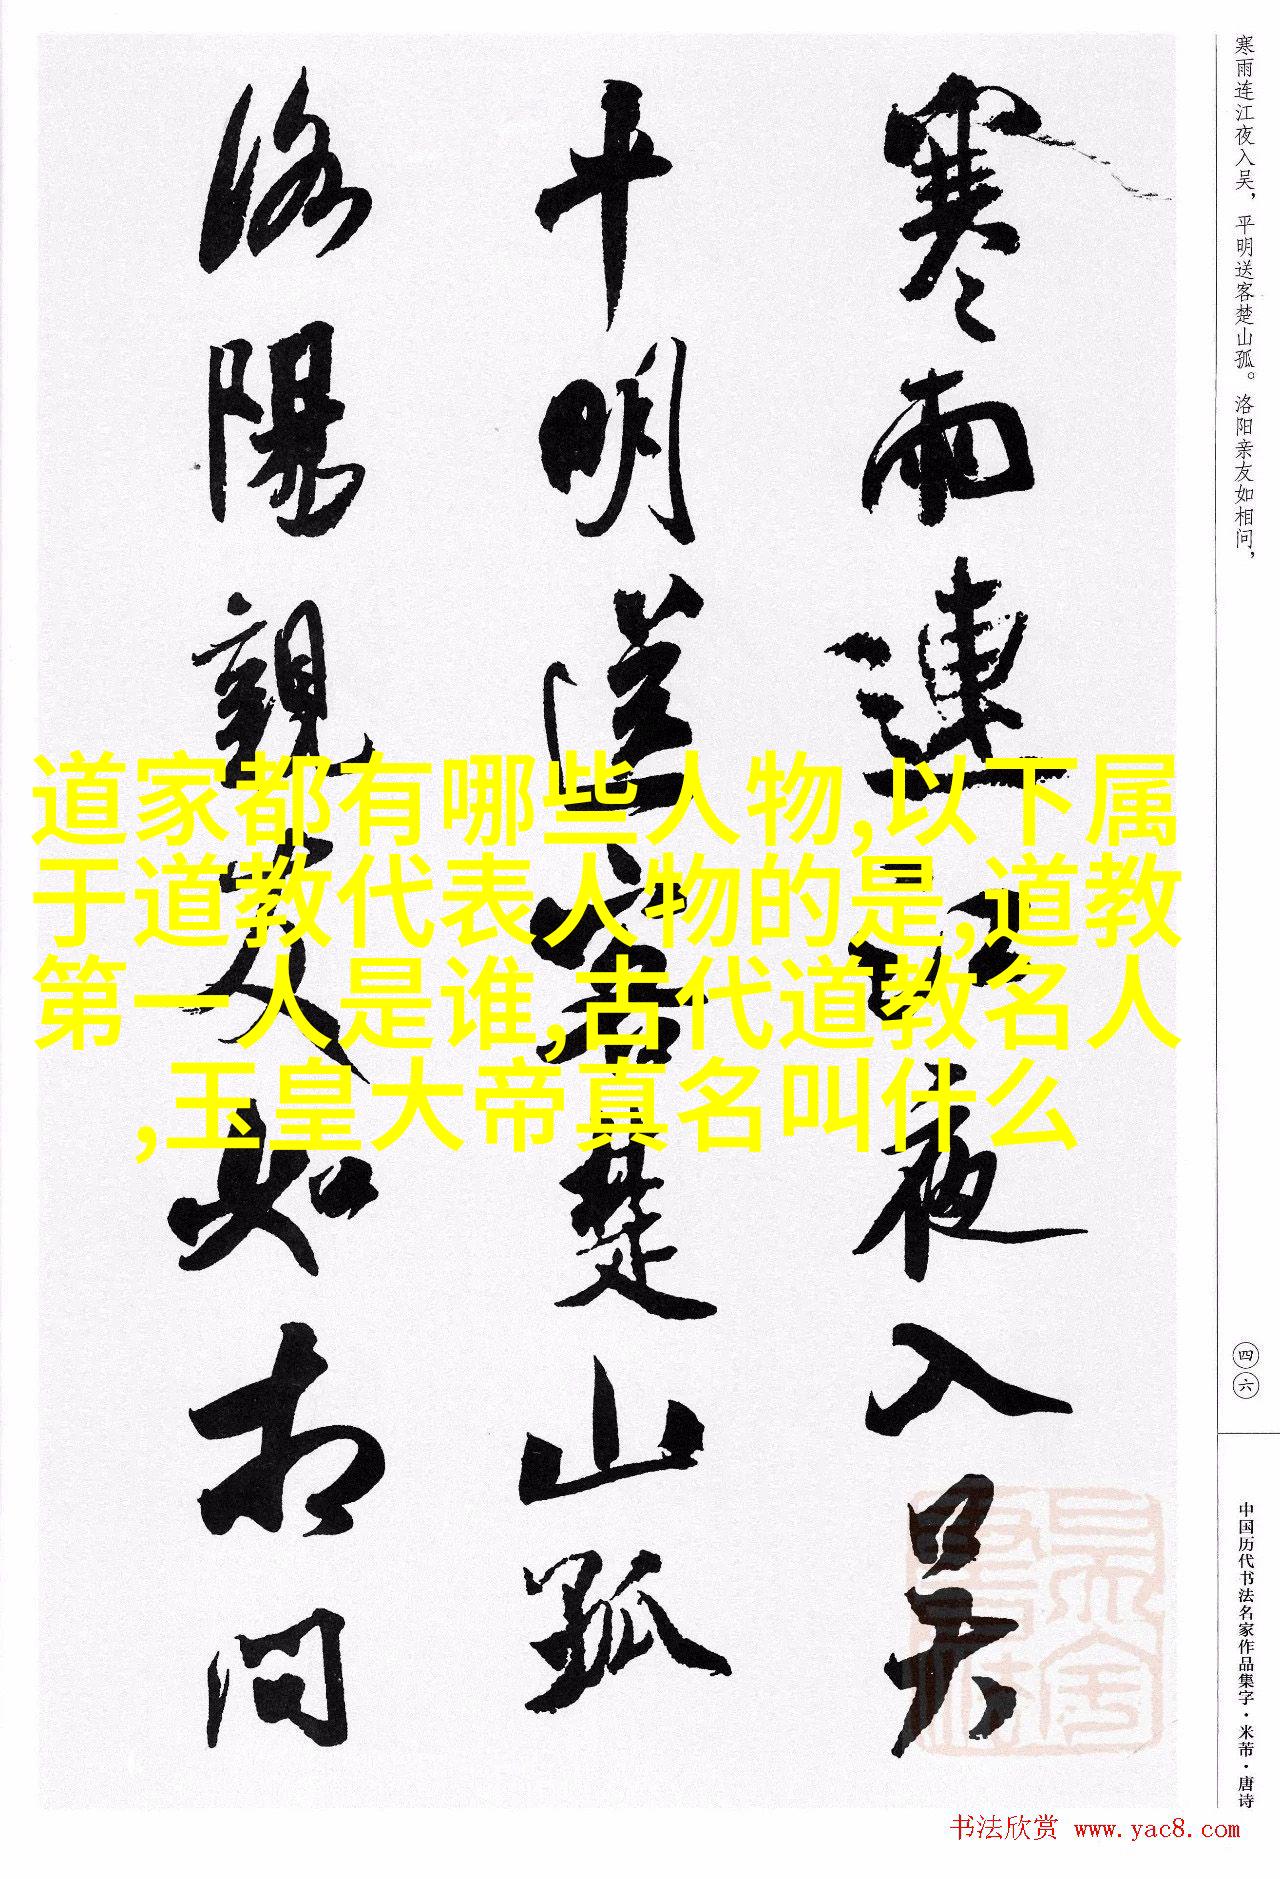 寒雨连江夜入吴，平明送客楚山孤。洛阳亲友如相问，
寒雨連江夜入吴
平明送客楚山孤
洛陽親友如相问
道家都有哪些人物,以下属
于道教代表人物的是,道教
第一人是谁,古代道教名人
,玉皇大帝真名叫什么
四六
中国历代书法名家作品集字·米芾·唐诗
书法欣赏 www.yac8.com